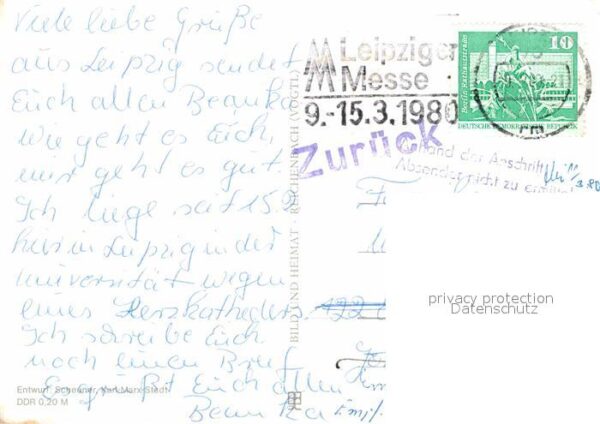 Viele liebe Grüße
aus Leipzig sendet
Euch allen
wie geht es Euch
mir geht es gut.
Ich liege seit 15.2
hier in Leipzig in der
Universität wegen
eines Herzkatheders.
Ich schreibe Euch
noch einen Brief
Es grüßt Euch allen
Entwurf: Scheuner, Karl-Marx-Stadt
DDR 0,20 M
BILD UND HEIMAT · REICHENBACH (VOGTL)
Leipziger
Messe
9.-15.3.1980
10
Berlin, Rathausstraße
DEUTSCHE DEMOKRATISCHE REPUBLIK
Zurück
der Anschrift
Absender nicht zu
122
privacy protection
Datenschutz